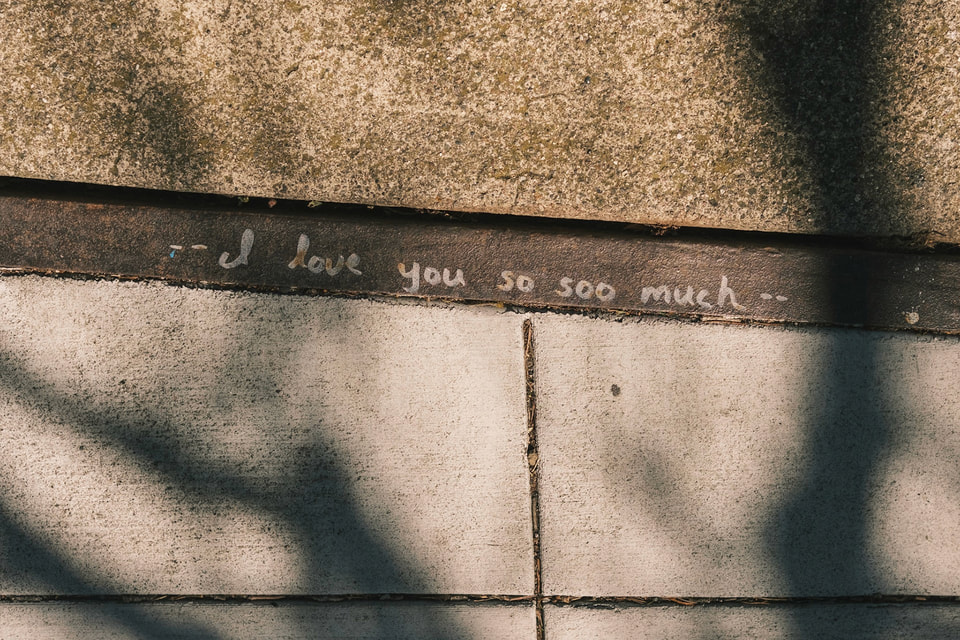 -- I love you so soo much --